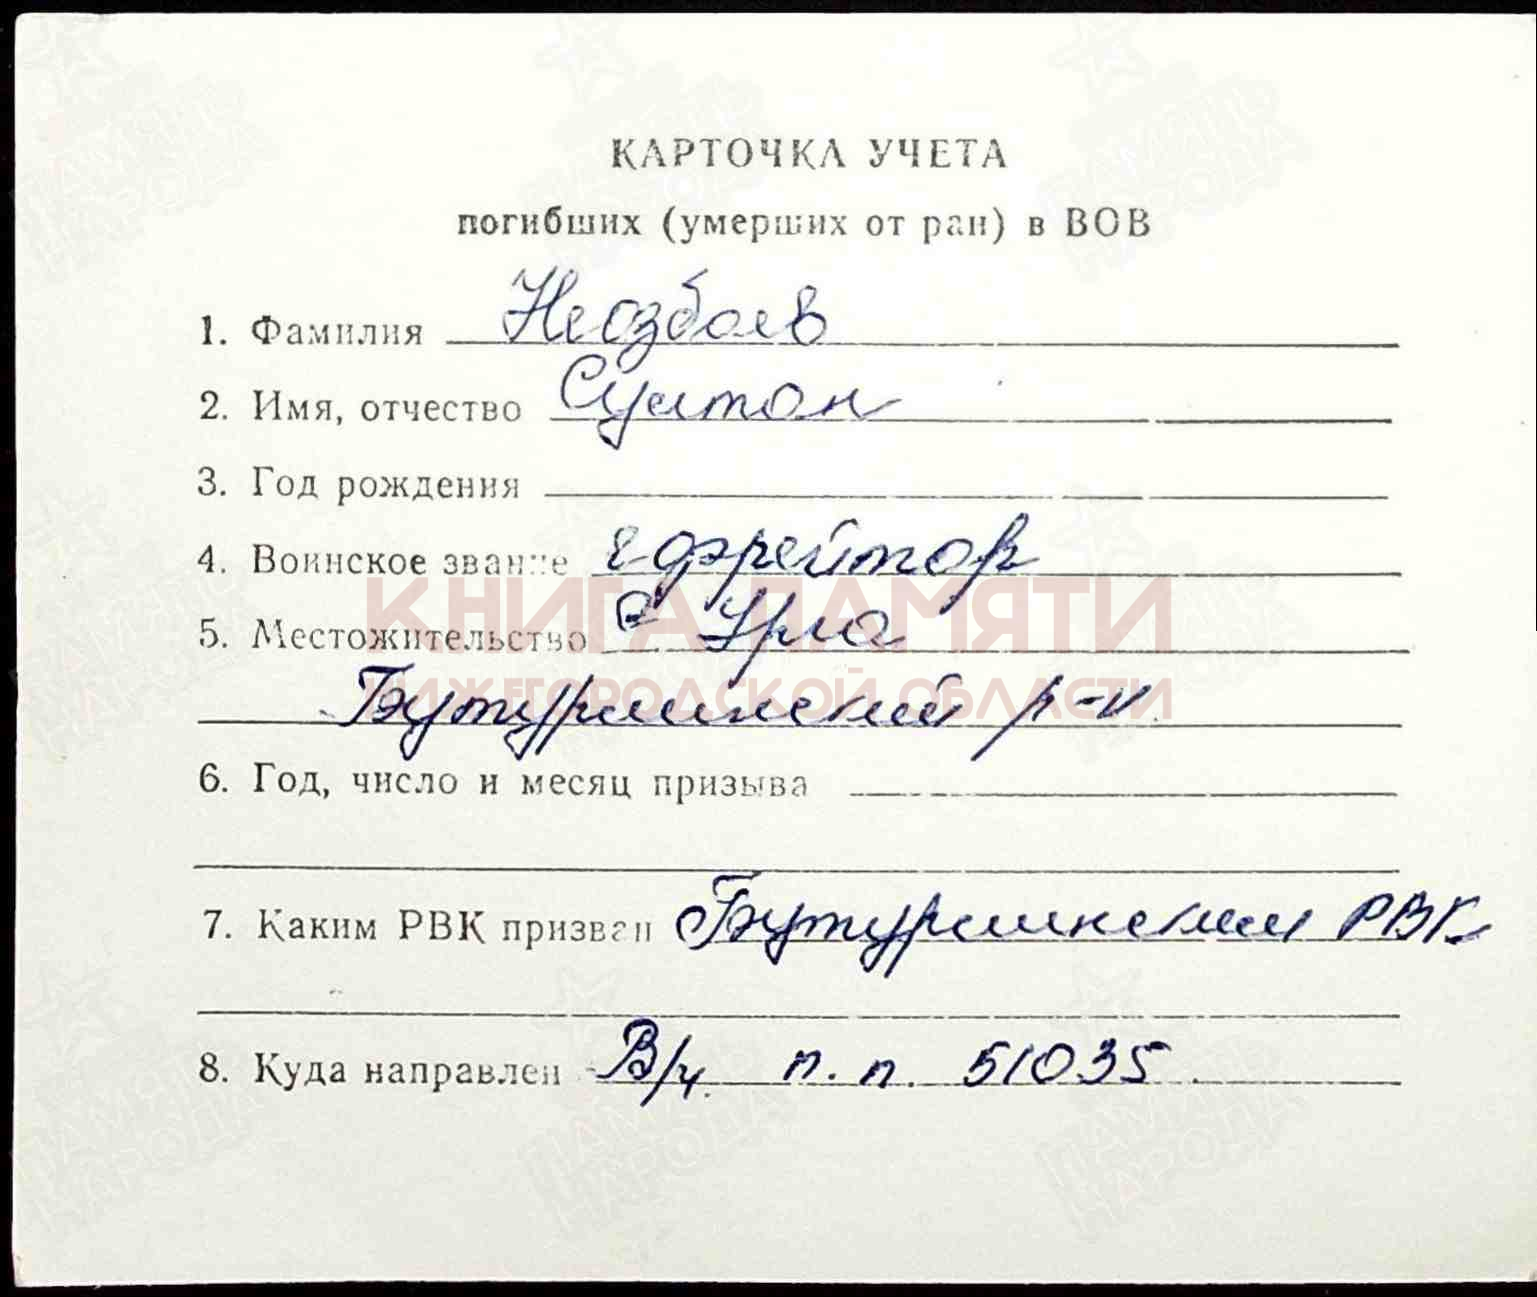 КАРТОЧКА УЧЕТА
погибших (умерших от ран) в ВОВ
1. Фамилия Неозбоев
2. Имя, отчество Султон
3. Год рождения
4. Воинское звание ефрейтор
5. Местожительство с Урга
Бутурлинский р-н
6. Год, число и месяц призыва
7. Каким РВК призван Бутурлинским РВК
8. Куда направлен В/ч. п. п. 51035
КНИГА ПАМЯТИ
НИЖЕГОРОДСКОЙ ОБЛАСТИ
ПАМЯТЬ НАРОДА